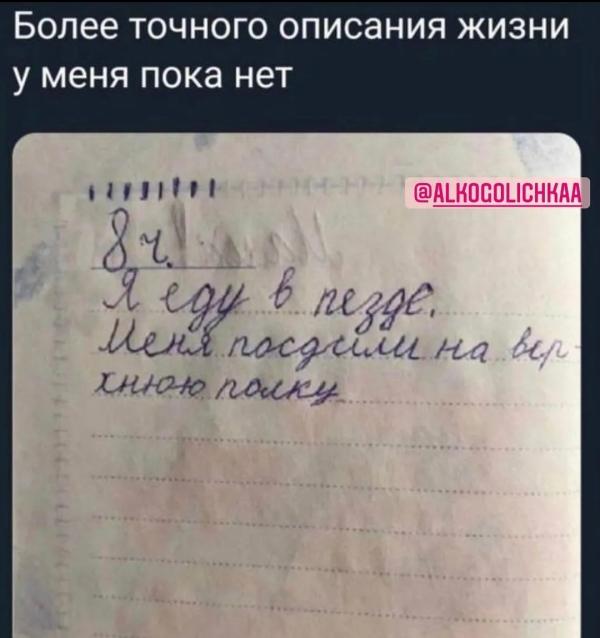 Более точного описания жизни
у меня пока нет
@ALKOGOLICHKAA
8 ч.
Я еду в пезде.
Меня посдили на вер-
хнюю полку